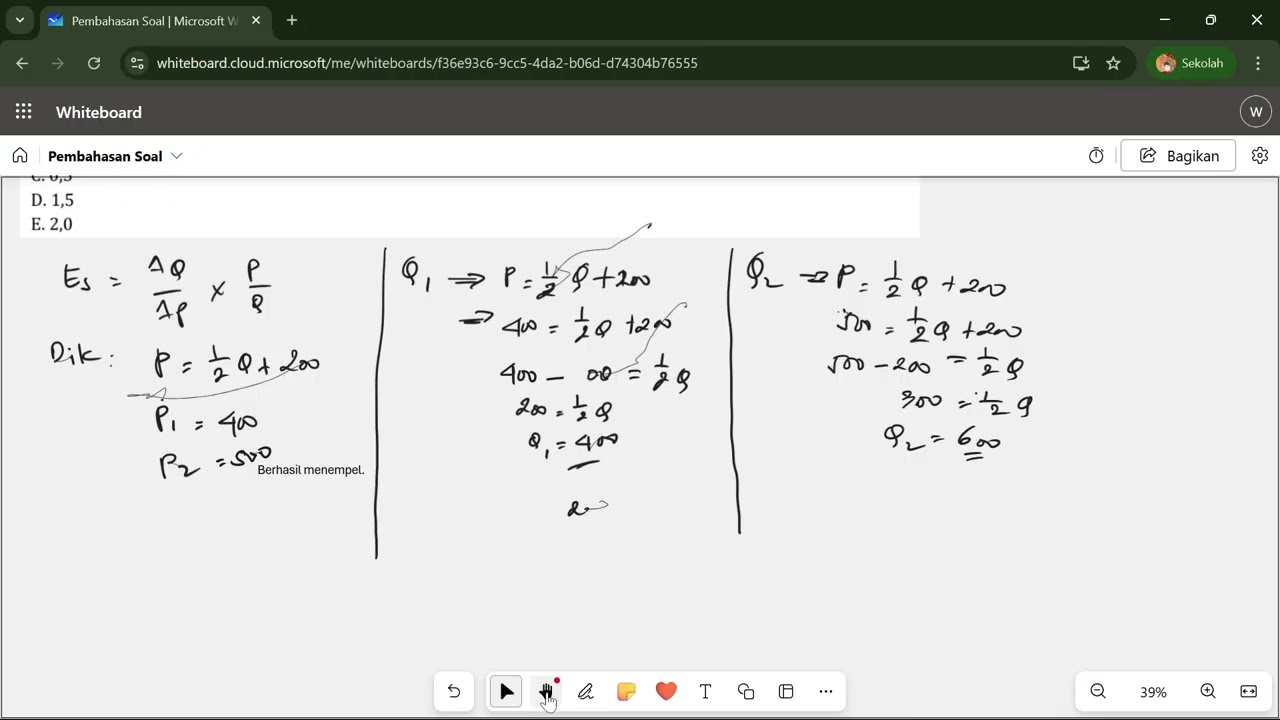 Pembahasan Soal | Microsoft W
whiteboard.cloud.microsoft/me/whiteboards/f36e93c6-9cc5-4da2-b06d-d74304b76555
Sekolah
Whiteboard
W
Pembahasan Soal
Bagikan
C. 0,5
D. 1,5
E. 2,0
Es = ΔQ/ΔP × P/Q
Dik: P = 1/2 Q + 200
P1 = 400
P2 = 500
Berhasil menempel.
Q1 ⇒ P = 1/2 Q + 200
⇒ 400 = 1/2 Q + 200
400 - 00 = 1/2 Q
200 = 1/2 Q
Q1 = 400
Q2 ⇒ P = 1/2 Q + 200
500 = 1/2 Q + 200
500 - 200 = 1/2 Q
300 = 1/2 Q
Q2 = 600
39%